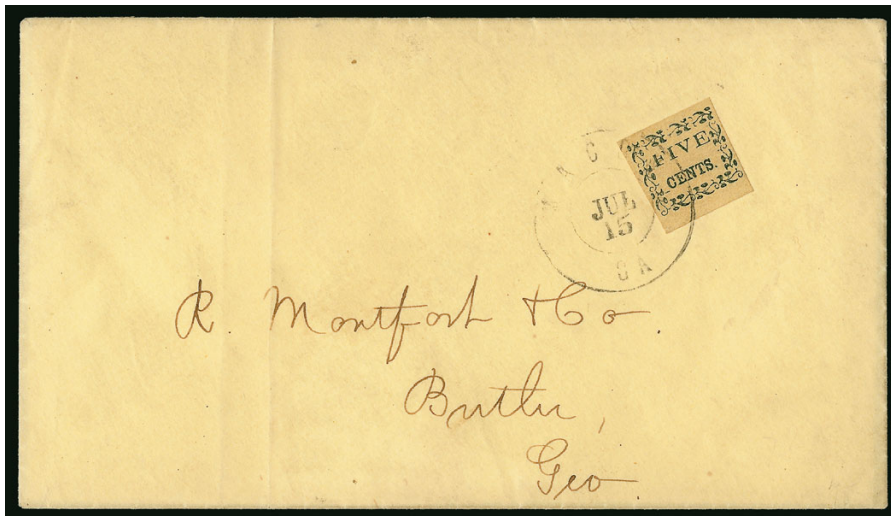 FIVE
CENTS.
MAC
JUL
15
GA
R. Montfort & Co
Butler,
Geo